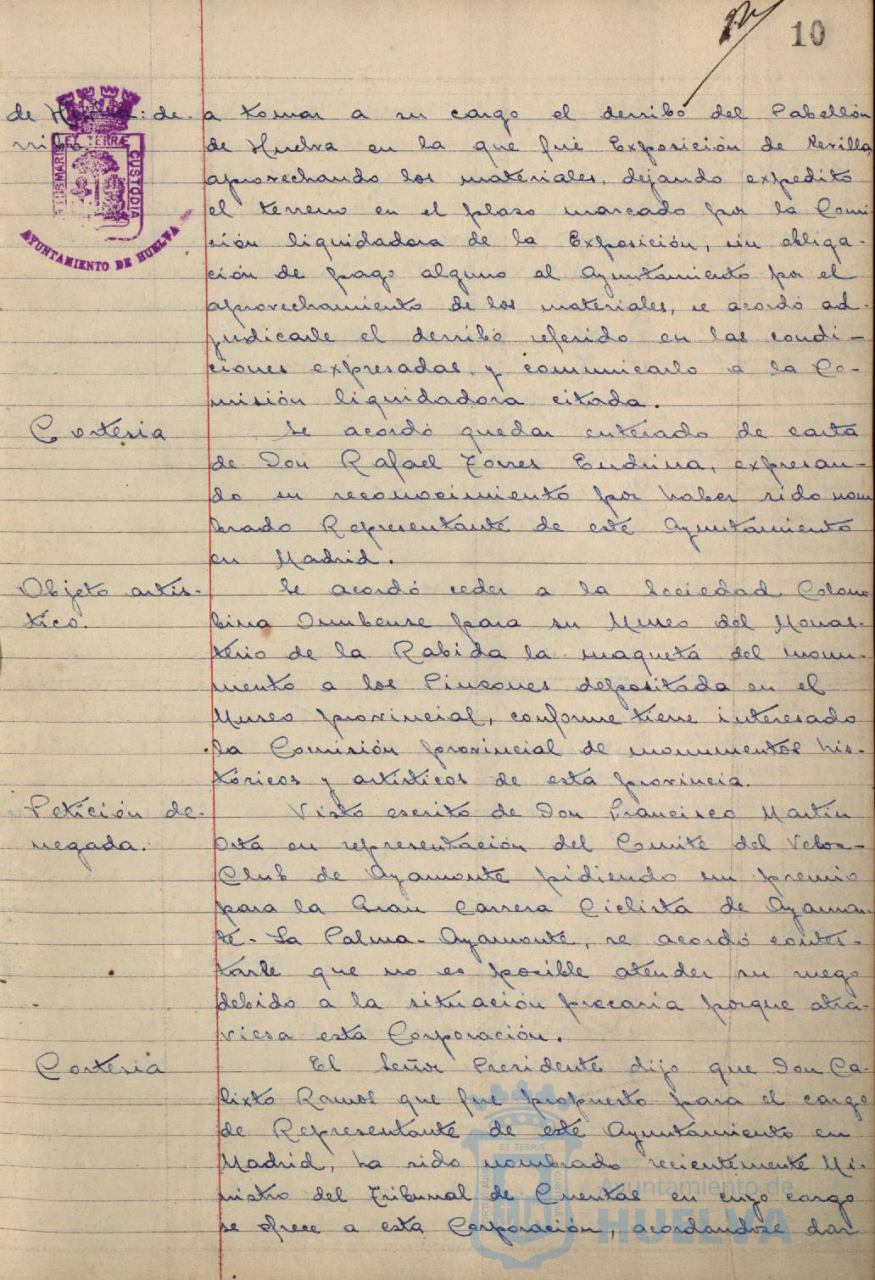 10
de Huelva: de-
rribo.
a tomar a su cargo el derribo del Pabellón
de Huelva en la que fué Exposición de Sevilla,
aprovechando los materiales, dejando expedito
el terreno en el plazo marcado por la Comi-
sión liquidadora de la Exposición, sin obliga-
ción de pago alguno al Ayuntamiento por el
aprovechamiento de los materiales, se acordó ad-
judicarle el derribo referido en las condi-
ciones expresadas, y comunicarlo a la Co-
misión liquidadora citada.
Cortesia
Se acordó quedar enterado de carta
de Don Rafael Torres Endrina, expresan-
do su reconocimiento por haber sido nom
brado Representante de este Ayuntamiento
en Madrid.
Objeto artís-
tico.
Se acordó ceder a la Sociedad Colom
bina Onubense para su Museo del Monas-
terio de la Rabida la maqueta del monu-
mento a los Pinzones depositada en el
Museo provincial, conforme tiene interesado
la Comisión provincial de monumentos his-
tóricos y artísticos de esta provincia.
Petición de-
negada.
Visto escrito de Don Francisco Martín
Orta en representación del Comité del Veloz-
Club de Ayamonte pidiendo un premio
para la Gran Carrera Ciclista de Ayamon-
te-La Palma-Ayamonte, se acordó contes-
tarle que no es posible atender su ruego
debido a la situación precaria porque atra-
viesa esta Corporación.
Cortesia
El Señor Presidente dijo que Don Ca-
lixto Ramos que fué propuesto para el cargo
de Representante de este Ayuntamiento en
Madrid, ha sido nombrado recientemente Mi-
nistro del Tribunal de Cuentas en cuyo cargo
se ofrece a esta Corporación, acordandose dar
ET TERRÆ
CUSTODIA
AYUNTAMIENTO DE HUELVA
Ayuntamiento de
HUELVA